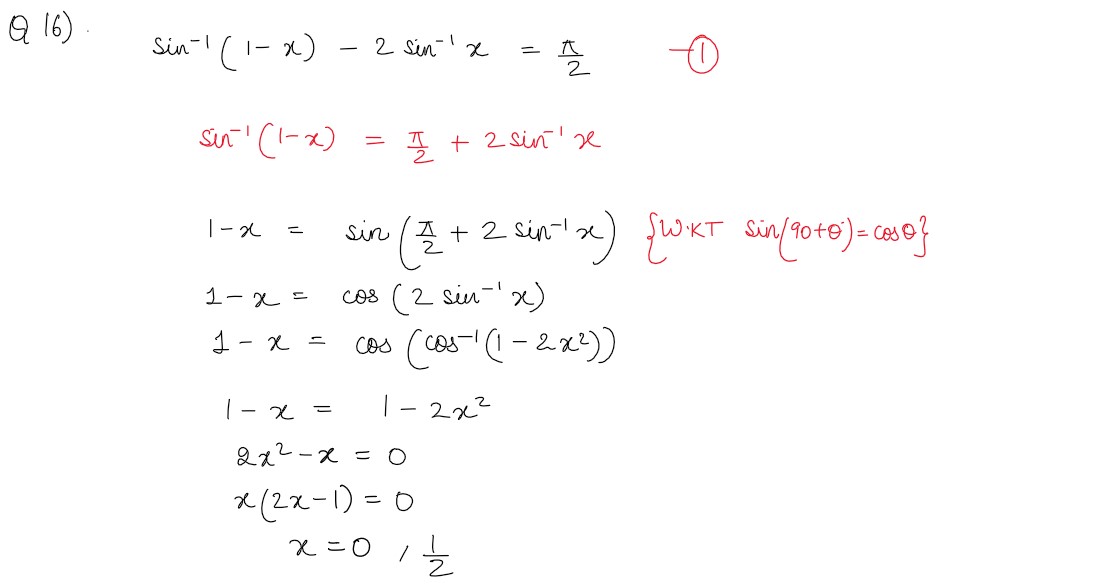 Q 16).
sin⁻¹(1-x) - 2 sin⁻¹ x = π/2 —①
sin⁻¹(1-x) = π/2 + 2 sin⁻¹ x
1-x = sin(π/2 + 2 sin⁻¹ x) {W.KT sin(90+θ)=cosθ}
1-x = cos(2 sin⁻¹ x)
1-x = cos(cos⁻¹(1-2x²))
1-x = 1-2x²
2x²-x = 0
x(2x-1) = 0
x = 0 , 1/2